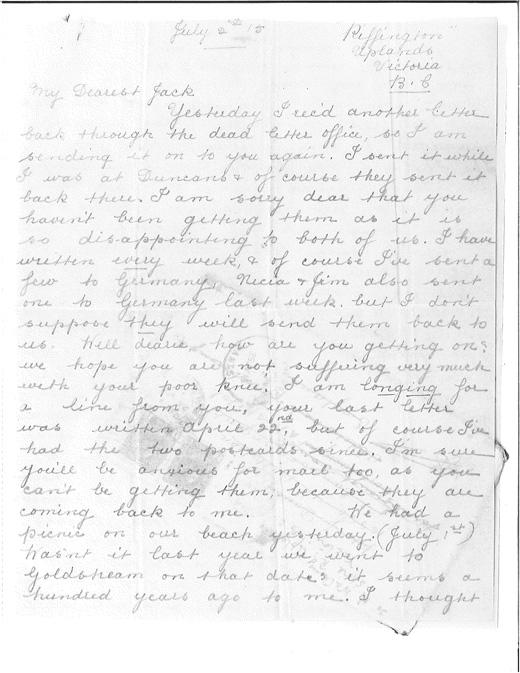 July 2nd 15
"Riffington"
Uplands
Victoria
B.C
My Dearest Jack
Yesterday I rec'd another letter
back through the dead letter office, so I am
sending it on to you again. I sent it while
I was at Duncans & of course they sent it
back there. I am sorry dear that you
haven't been getting them as it is
so disappointing to both of us. I have
written every week, & of course I've sent a
few to Germany, Necia & Jim also sent
one to Germany last week. but I don't
suppose they will send them back to
us. Well dearie how are you getting on?
we hope you are not suffering very much
with your poor knee. I am longing for
a line from you, your last letter
was written April 22nd, but of course I've
had the two postcards since. I'm sure
you'll be anxious for mail too, as you
can't be getting them, because they are
coming back to me. We had a
picnic on our beach yesterday. (July 1st)
Wasn't it last year we went to
Goldstream on that date? it seems a
hundred years ago to me. I thought